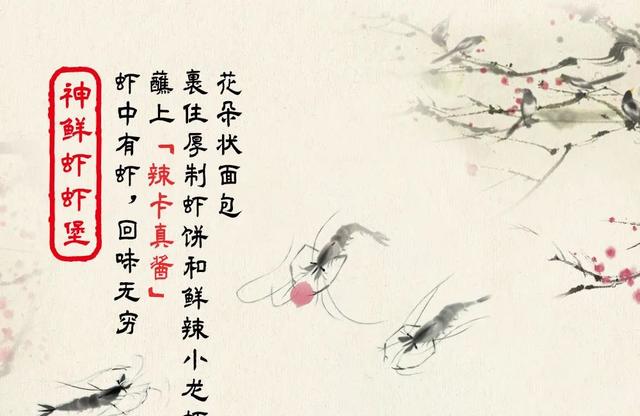 花朵状面包
裹住厚制虾饼和鲜辣小龙虾
蘸上「辣卡真酱」
虾中有虾，回味无穷
神鲜虾虾堡